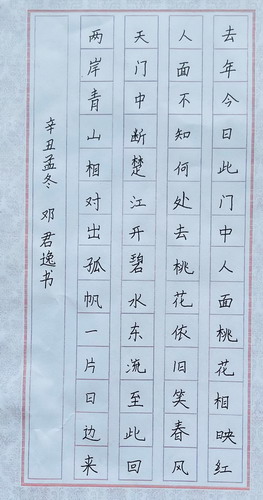 去年今日此门中人面桃花相映红
人面不知何处去桃花依旧笑春风
天门中断楚江开碧水东流至此回
两岸青山相对出孤帆一片日边来
辛丑孟冬 邓君逸书